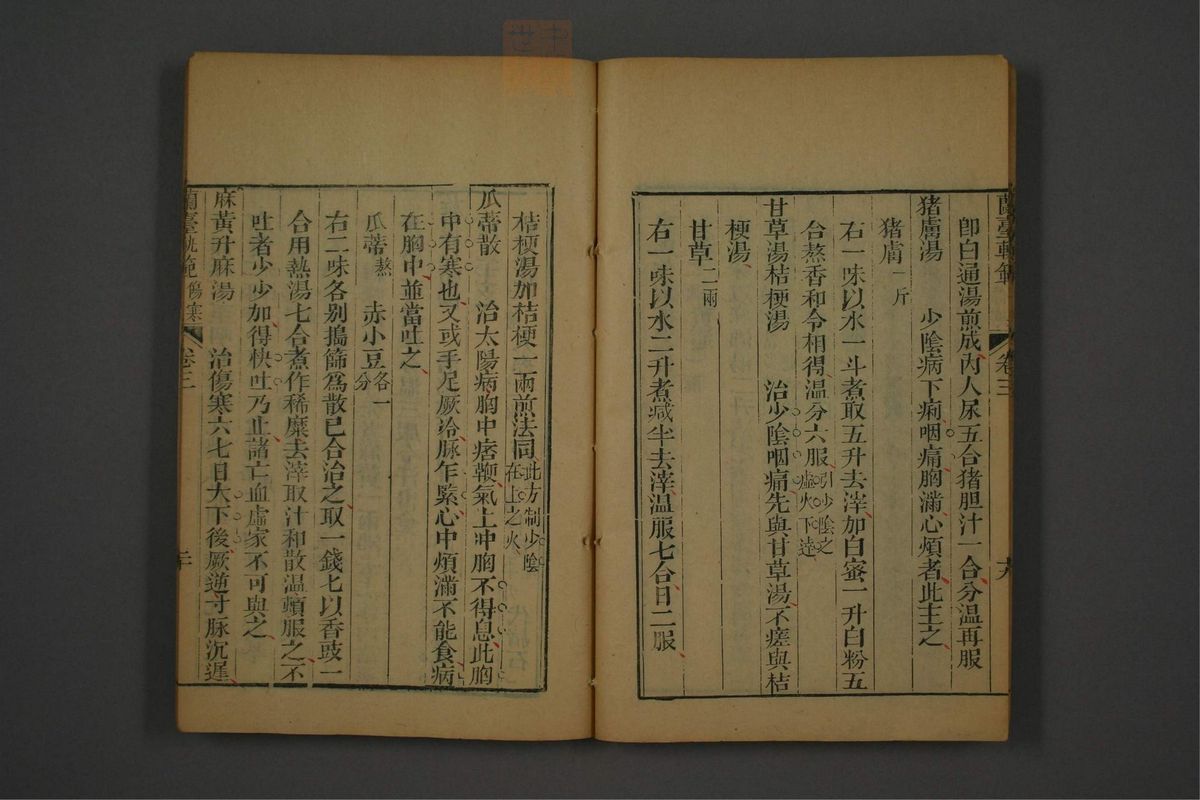 蘭臺軌範
卷三
十九
卽白通湯煎成內人尿五合猪胆汁一合分溫再服
猪膚湯 少陰病下痢咽痛胸滿心煩者此主之
猪膚一斤
右一味以水一斗煮取五升去滓加白蜜一升白粉五
合熬香和令相得溫分六服引少陰之虛火下達
甘草湯桔梗湯 治少陰咽痛先與甘草湯不瘥與桔
梗湯
甘草二兩
右一味以水二升煮减半去滓溫服七合日二服
桔梗湯加桔梗一兩煎法同此方制少陰在上之火
瓜蒂散 治太陽病胸中痞鞕氣上冲胸不得息此胸
中有寒也又或手足厥冷脉乍緊心中煩滿不能食病
在胸中並當吐之
瓜蒂熬 赤小豆各一分
右二味各別搗篩爲散已合治之取一錢匕以香豉一
合用熱湯七合煮作稀糜去滓取汁和散溫頓服之不
吐者少少加得快吐乃止諸亡血虛家不可與之
麻黃升麻湯 治傷寒六七日大下後厥逆寸脉沉遲
蘭臺軌範 傷寒
卷三
二十